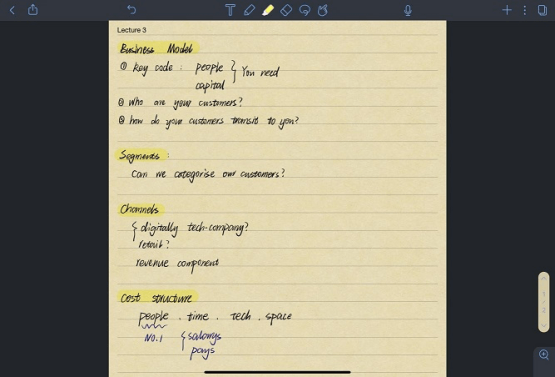 Lecture 3
Business Model
① key code : people } You need
capital
② Who are your customers?
③ how do your customers transit to you?
Segments :
Can we categorise our customers?
Channels
{ digitally tech-company?
retail?
revenue component
Cost structure
people . time . tech . space
No.1 { salarys
pays